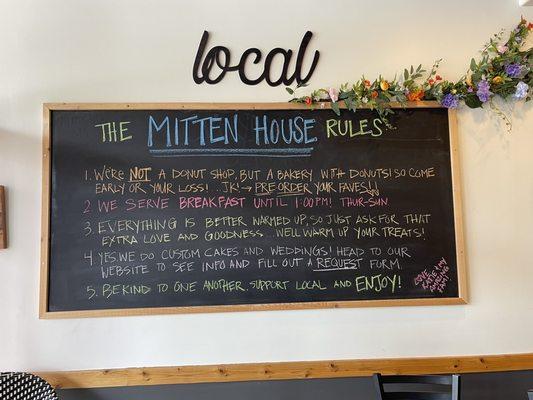 local
THE MITTEN HOUSE RULES
1. WE'RE NOT A DONUT SHOP, BUT A BAKERY WITH DONUTS! SO COME
EARLY OR YOUR LOSS!...JK! → PRE-ORDER YOUR FAVES!!
2. WE SERVE BREAKFAST UNTIL 1:00PM! THUR-SUN
3. EVERYTHING IS BETTER WARMED UP, SO JUST ASK FOR THAT
EXTRA LOVE AND GOODNESS...WE'LL WARM UP YOUR TREATS!
4. YES, WE DO CUSTOM CAKES AND WEDDINGS! HEAD TO OUR
WEBSITE TO SEE INFO AND FILL OUT A REQUEST FORM.
5. BE KIND TO ONE ANOTHER, SUPPORT LOCAL AND ENJOY!
LOVE,
KATE + MY
AMAZING
FAM